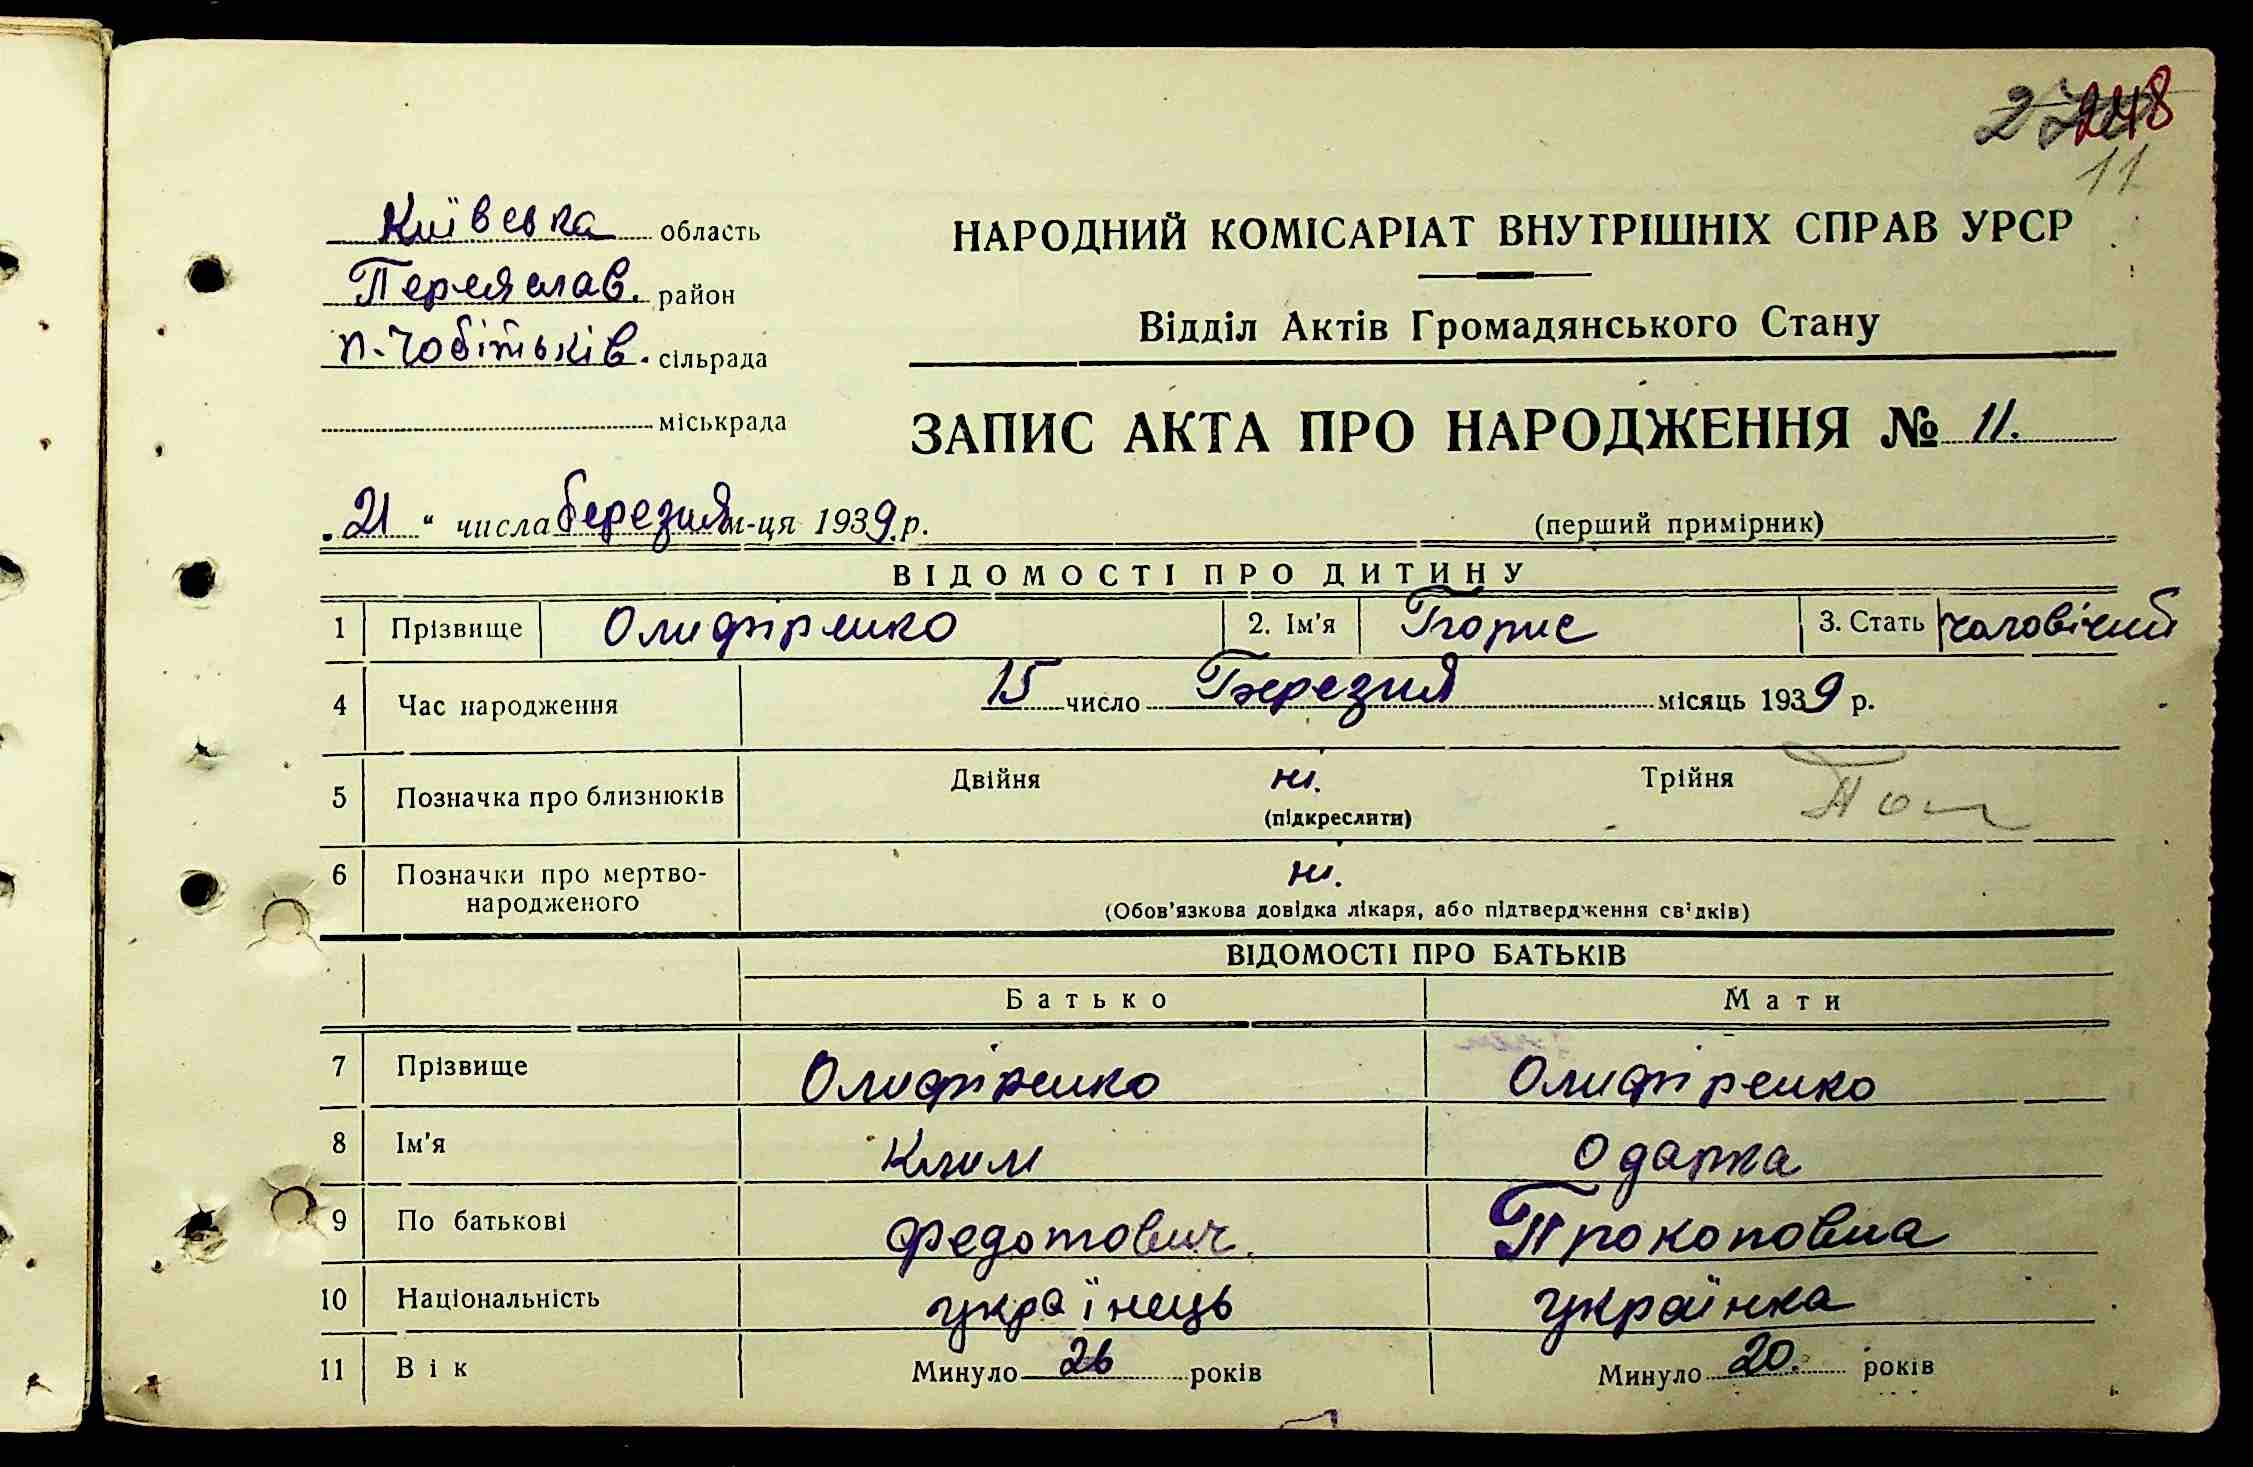 248
11
Київська область
Переяслав. район
п-Чобітьків. сільрада
міськрада
НАРОДНИЙ КОМІСАРІАТ ВНУТРІШНІХ СПРАВ УРСР
Відділ Актів Громадянського Стану
ЗАПИС АКТА ПРО НАРОДЖЕННЯ № 11.
„21“ числа березня м-ця 1939 р.
(перший примірник)
ВІДОМОСТІ ПРО ДИТИНУ
1 Прізвище Олифіренко 2. Ім'я Борис 3. Стать чоловічий
4 Час народження 15 число Березня місяць 1939 р.
5 Позначка про близнюків Двійня ні. Трійня
(підкреслити)
6 Позначки про мертво-
народженого ні.
(Обов'язкова довідка лікаря, або підтвердження свідків)
ВІДОМОСТІ ПРО БАТЬКІВ
Батько Мати
7 Прізвище Олифіренко Олифіренко
8 Ім'я Клим Одарка
9 По батькові Федотович. Прокоповна
10 Національність українець українка
11 Вік Минуло 26 років Минуло 20. років